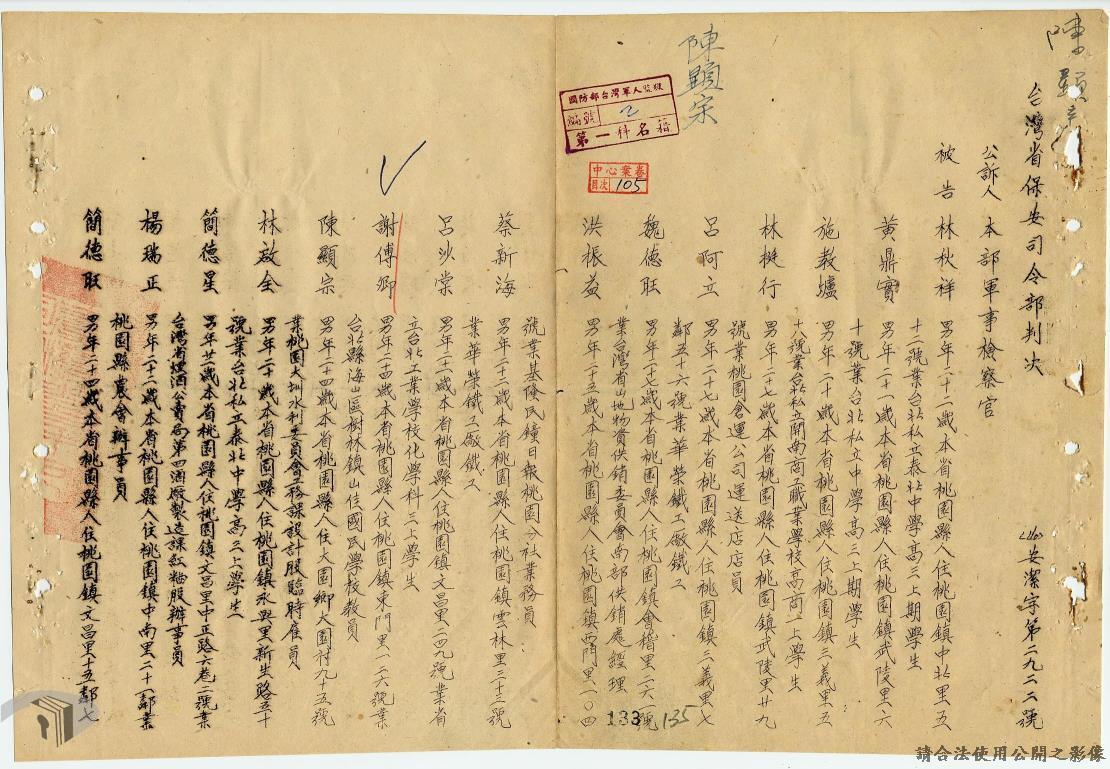 陳顯宗
台灣省保安司令部判決
安潔字第二九二二號
公訴人 本部軍事檢察官
被告 林秋祥 男年二十二歲本省桃園縣人住桃園鎮中北里五
十二號業台北私立泰北中學高三上期學生
黃鼎實 男年二十一歲本省桃園縣人住桃園鎮武陵里六
十號業台北私立中學高三上期學生
施教爐 男年二十歲本省桃園縣人住桃園鎮三義里五
十八號業台北私立開南商工職業學校高商一上學生
林挺行 男年二十七歲本省桃園縣人住桃園鎮武陵里廿九
號業桃園倉運公司運送店店員
呂阿立 男年二十七歲本省桃園縣人住桃園鎮三義里七
鄰五十六號業華榮鐵工廠鐵工
魏德旺 男年二十七歲本省桃園縣人住桃園鎮會稽里二六一號
業台灣省山地物資供銷委員會南部供銷處經理
洪振益 男年二十五歲本省桃園縣人住桃園鎮西門里一〇四
號業基隆民鐘日報桃園分社業務員
蔡新海 男年二十二歲本省桃園縣人住桃園鎮雲林里三十三號
業華榮鐵工廠鐵工
呂沙棠 男年二十二歲本省桃園縣人住桃園鎮文昌里二四九號業省
立台北工業學校化學科三上學生
謝傅卿 男年二十四歲本省桃園縣人住桃園鎮東門里一二六號業
台北縣海山區樹林鎮山佳國民學校教員
陳顯宗 男年二十四歲本省桃園縣人住大園鄉大園村九十五號
業桃園大圳水利委員會工務課設計股臨時雇員
林啟全 男年二十歲本省桃園縣人住桃園鎮永興里新生路五十
號業台北私立泰北中學高三上學生
簡德星 男年廿二歲本省桃園縣人住桃園鎮文昌里中正路六巷二號業
台灣省煙酒公賣局第四酒廠製造課紅糟股辦事員
楊瑞正 男年二十二歲本省桃園縣人住桃園鎮中南里二十一鄰業
桃園縣農會辦事員
簡德取 男年二十四歲本省桃園縣人住桃園鎮文昌里十五鄰七
陳顯宗
國防部台灣軍人監獄
編號 2
第一科名籍
中心業卷
目次 105
133
135
請合法使用公開之影像